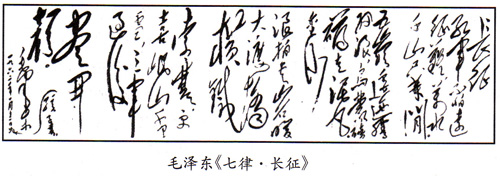 长征
红军不怕远
征难万水
千山只等闲
五岭逶迤腾
细浪乌蒙磅礴
走泥丸
金沙
浪拍
大渡桥
横铁
索寒更
喜岷山千
里雪三军
过后
尽开
颜
毛泽东
毛泽东《七律·长征》